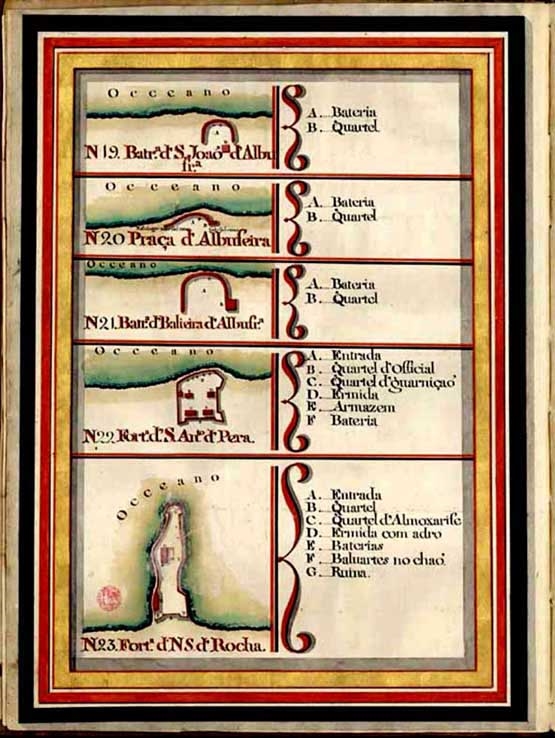 Occeano
A. Bateria
B. Quartel
N 19. Batr.ª d' S. Joaõ d' Albu
fr.ª
Occeano
A. Bateria
B. Quartel
N 20 Praça d' Albufeira
Occeano
A. Bateria
B. Quartel
N 21. Batr.ª d' Balieira d' Albufr.ª
Occeano
A. Entrada
B. Quartel d' Official
C. Quartel d' guarniçaõ
D. Ermida
E. Armazem
F Bateria
N 22 Fort.ª d.ª S. An.ª d' Pera.
Occeano
A. Entrada
B. Quartel
C. Quartel d' Almoxarife
D. Ermida com adro
E. Baterias
F. Baluartes no chaõ
G. Ruina.
N 23. Fort.ª d' N S. d' Rocha.